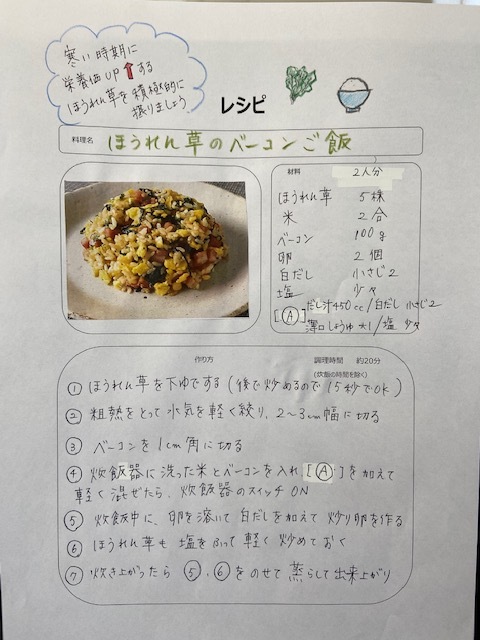 寒い時期に
栄養価UP↑する
ほうれん草を積極的に
摂りましょう
レシピ
料理名 ほうれん草のベーコンご飯
材料 2人分
ほうれん草 5株
米 2合
ベーコン 100g
卵 2個
白だし 小さじ2
塩 少々
[Ⓐ] だし汁450cc/白だし 小さじ2
薄口しょうゆ 大1/塩 少々
作り方 調理時間 約20分
(炊飯の時間を除く)
① ほうれん草を下ゆでする(後で炒めるので15秒でOK)
② 粗熱をとって水気を軽く絞り、2〜3cm幅に切る
③ ベーコンを1cm角に切る
④ 炊飯器に洗った米とベーコンを入れ[Ⓐ]を加えて
軽く混ぜたら、炊飯器のスイッチON
⑤ 炊飯中に、卵を溶いて白だしを加えて炒り卵を作る
⑥ ほうれん草も塩をふって軽く炒めておく
⑦ 炊き上がったら⑤、⑥をのせて蒸らして出来上がり